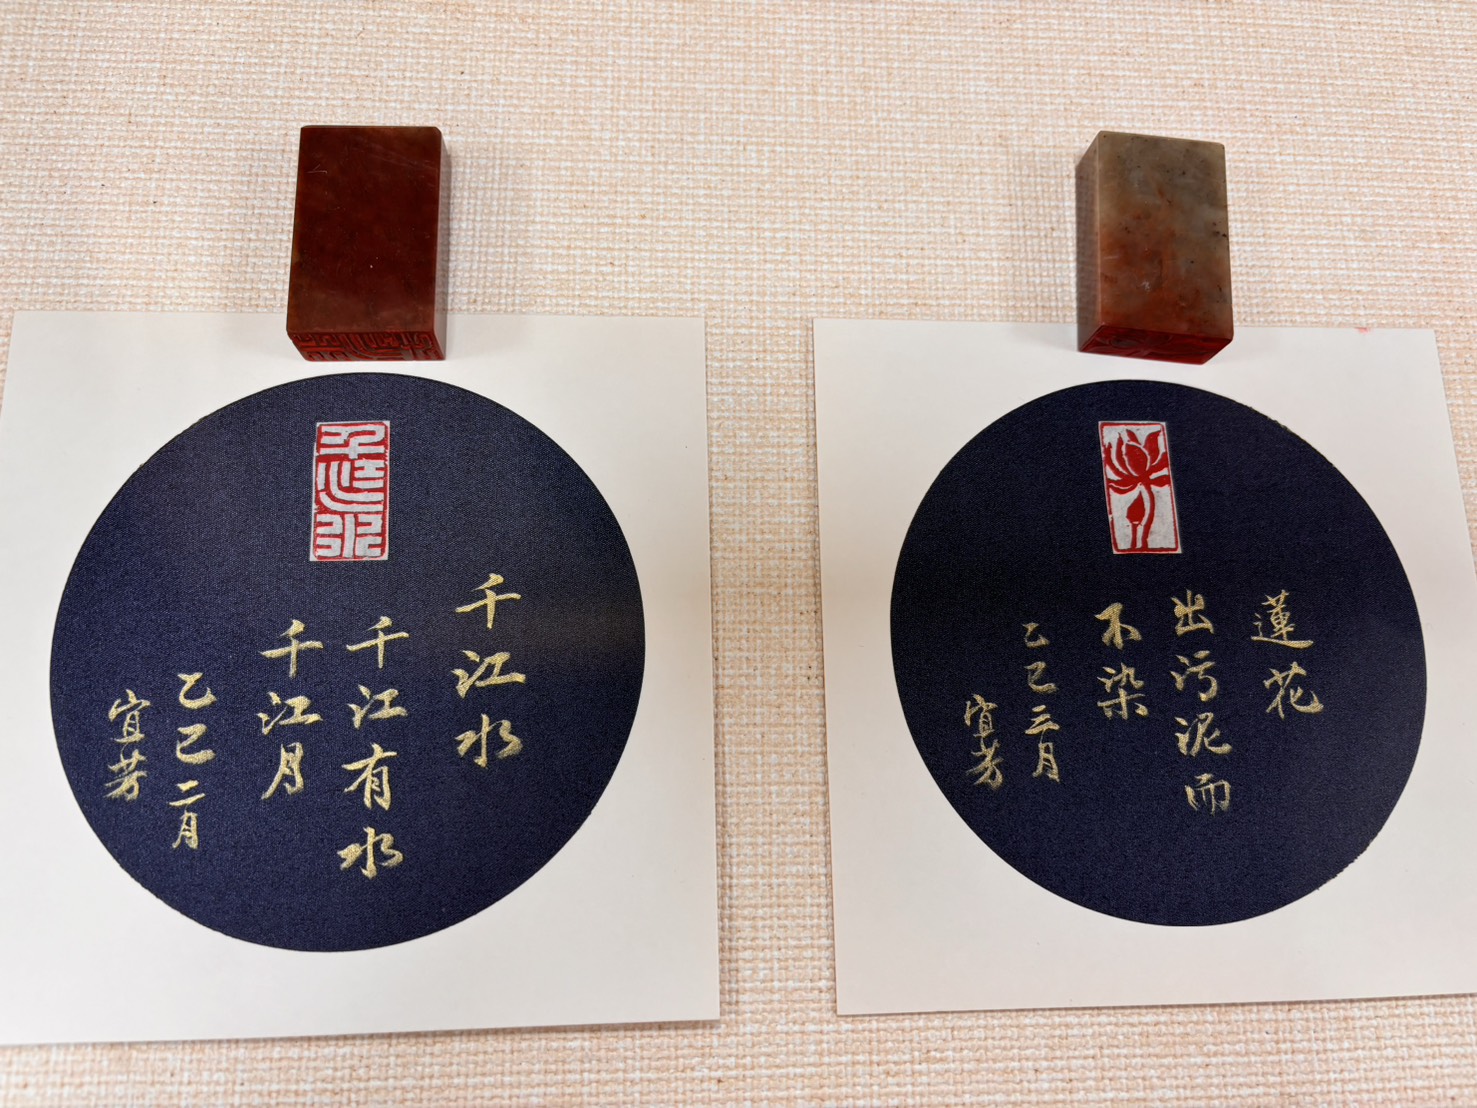 千江水
千江水
千江有水
千江月
乙巳二月
宜芳
蓮花
出污泥而
不染
乙巳三月
宜芳